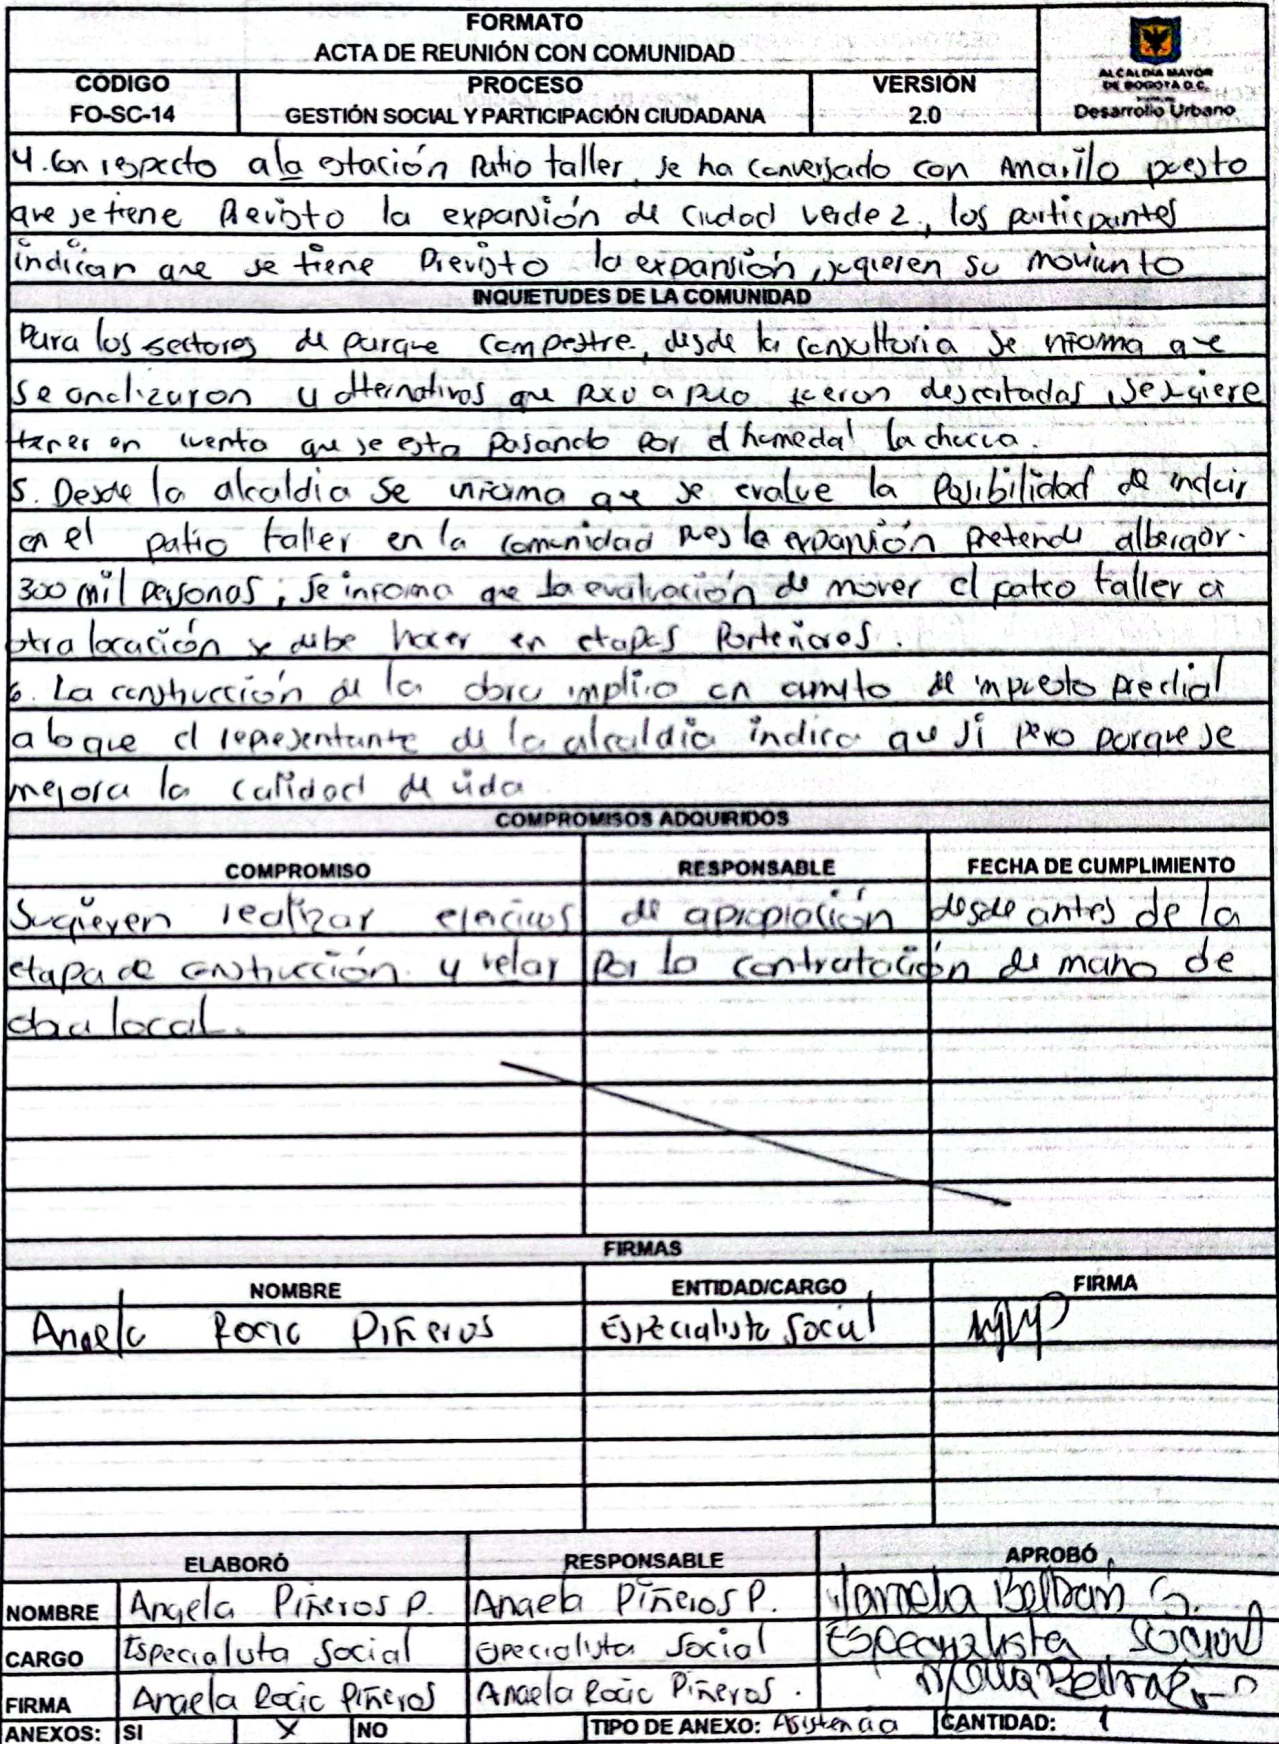 FORMATO
ACTA DE REUNIÓN CON COMUNIDAD
CÓDIGO
FO-SC-14
PROCESO
GESTIÓN SOCIAL Y PARTICIPACIÓN CIUDADANA
VERSIÓN
2.0
ALCALDÍA MAYOR
DE BOGOTÁ D.C.
Desarrollo Urbano
4. Con respecto a la estación Patio taller, se ha conversado con Amarilo puesto
que se tiene Previsto la expansión de Ciudad Verde 2, los participantes
indican que se tiene Previsto la expansión, sugieren su
INQUIETUDES DE LA COMUNIDAD
Para los sectores de parque campestre, desde la consultoria se informa que
se analizaron 4 alternativas que poco a poco fueron descartadas, se sugiere
tener en cuenta que se esta pasando por el humedal la chucua.
5. Desde la alcaldia se informa que se evalue la Posibilidad de incluir
en el patio taller en la comunidad pues la expansión pretende albergar.
300 mil personas; se informa que la evaluación de mover el patio taller a
otra locación se debe hacer en etapas Posteriores.
6. La construcción de la obra implica un de impuesto predial
a lo que el representante de la alcaldia indica que si pero porque se
mejora la calidad de vida
COMPROMISOS ADQUIRIDOS
COMPROMISO RESPONSABLE FECHA DE CUMPLIMIENTO
Sugieren realizar ejercicios de apropiación desde antes de la
etapa de construcción. y velar por la contratación de mano de
obra local.
FIRMAS
NOMBRE ENTIDAD/CARGO FIRMA
Angela Rocio Piñeros Especialista Social
ELABORÓ RESPONSABLE APROBÓ
NOMBRE Angela Piñeros P. Angela Piñeros P. Beltrán S.
CARGO Especialista Social Especialista Social Especialista Social
FIRMA Angela Rocio Piñeros Angela Rocio Piñeros.
ANEXOS: SI X NO TIPO DE ANEXO: Asistencia CANTIDAD: 1